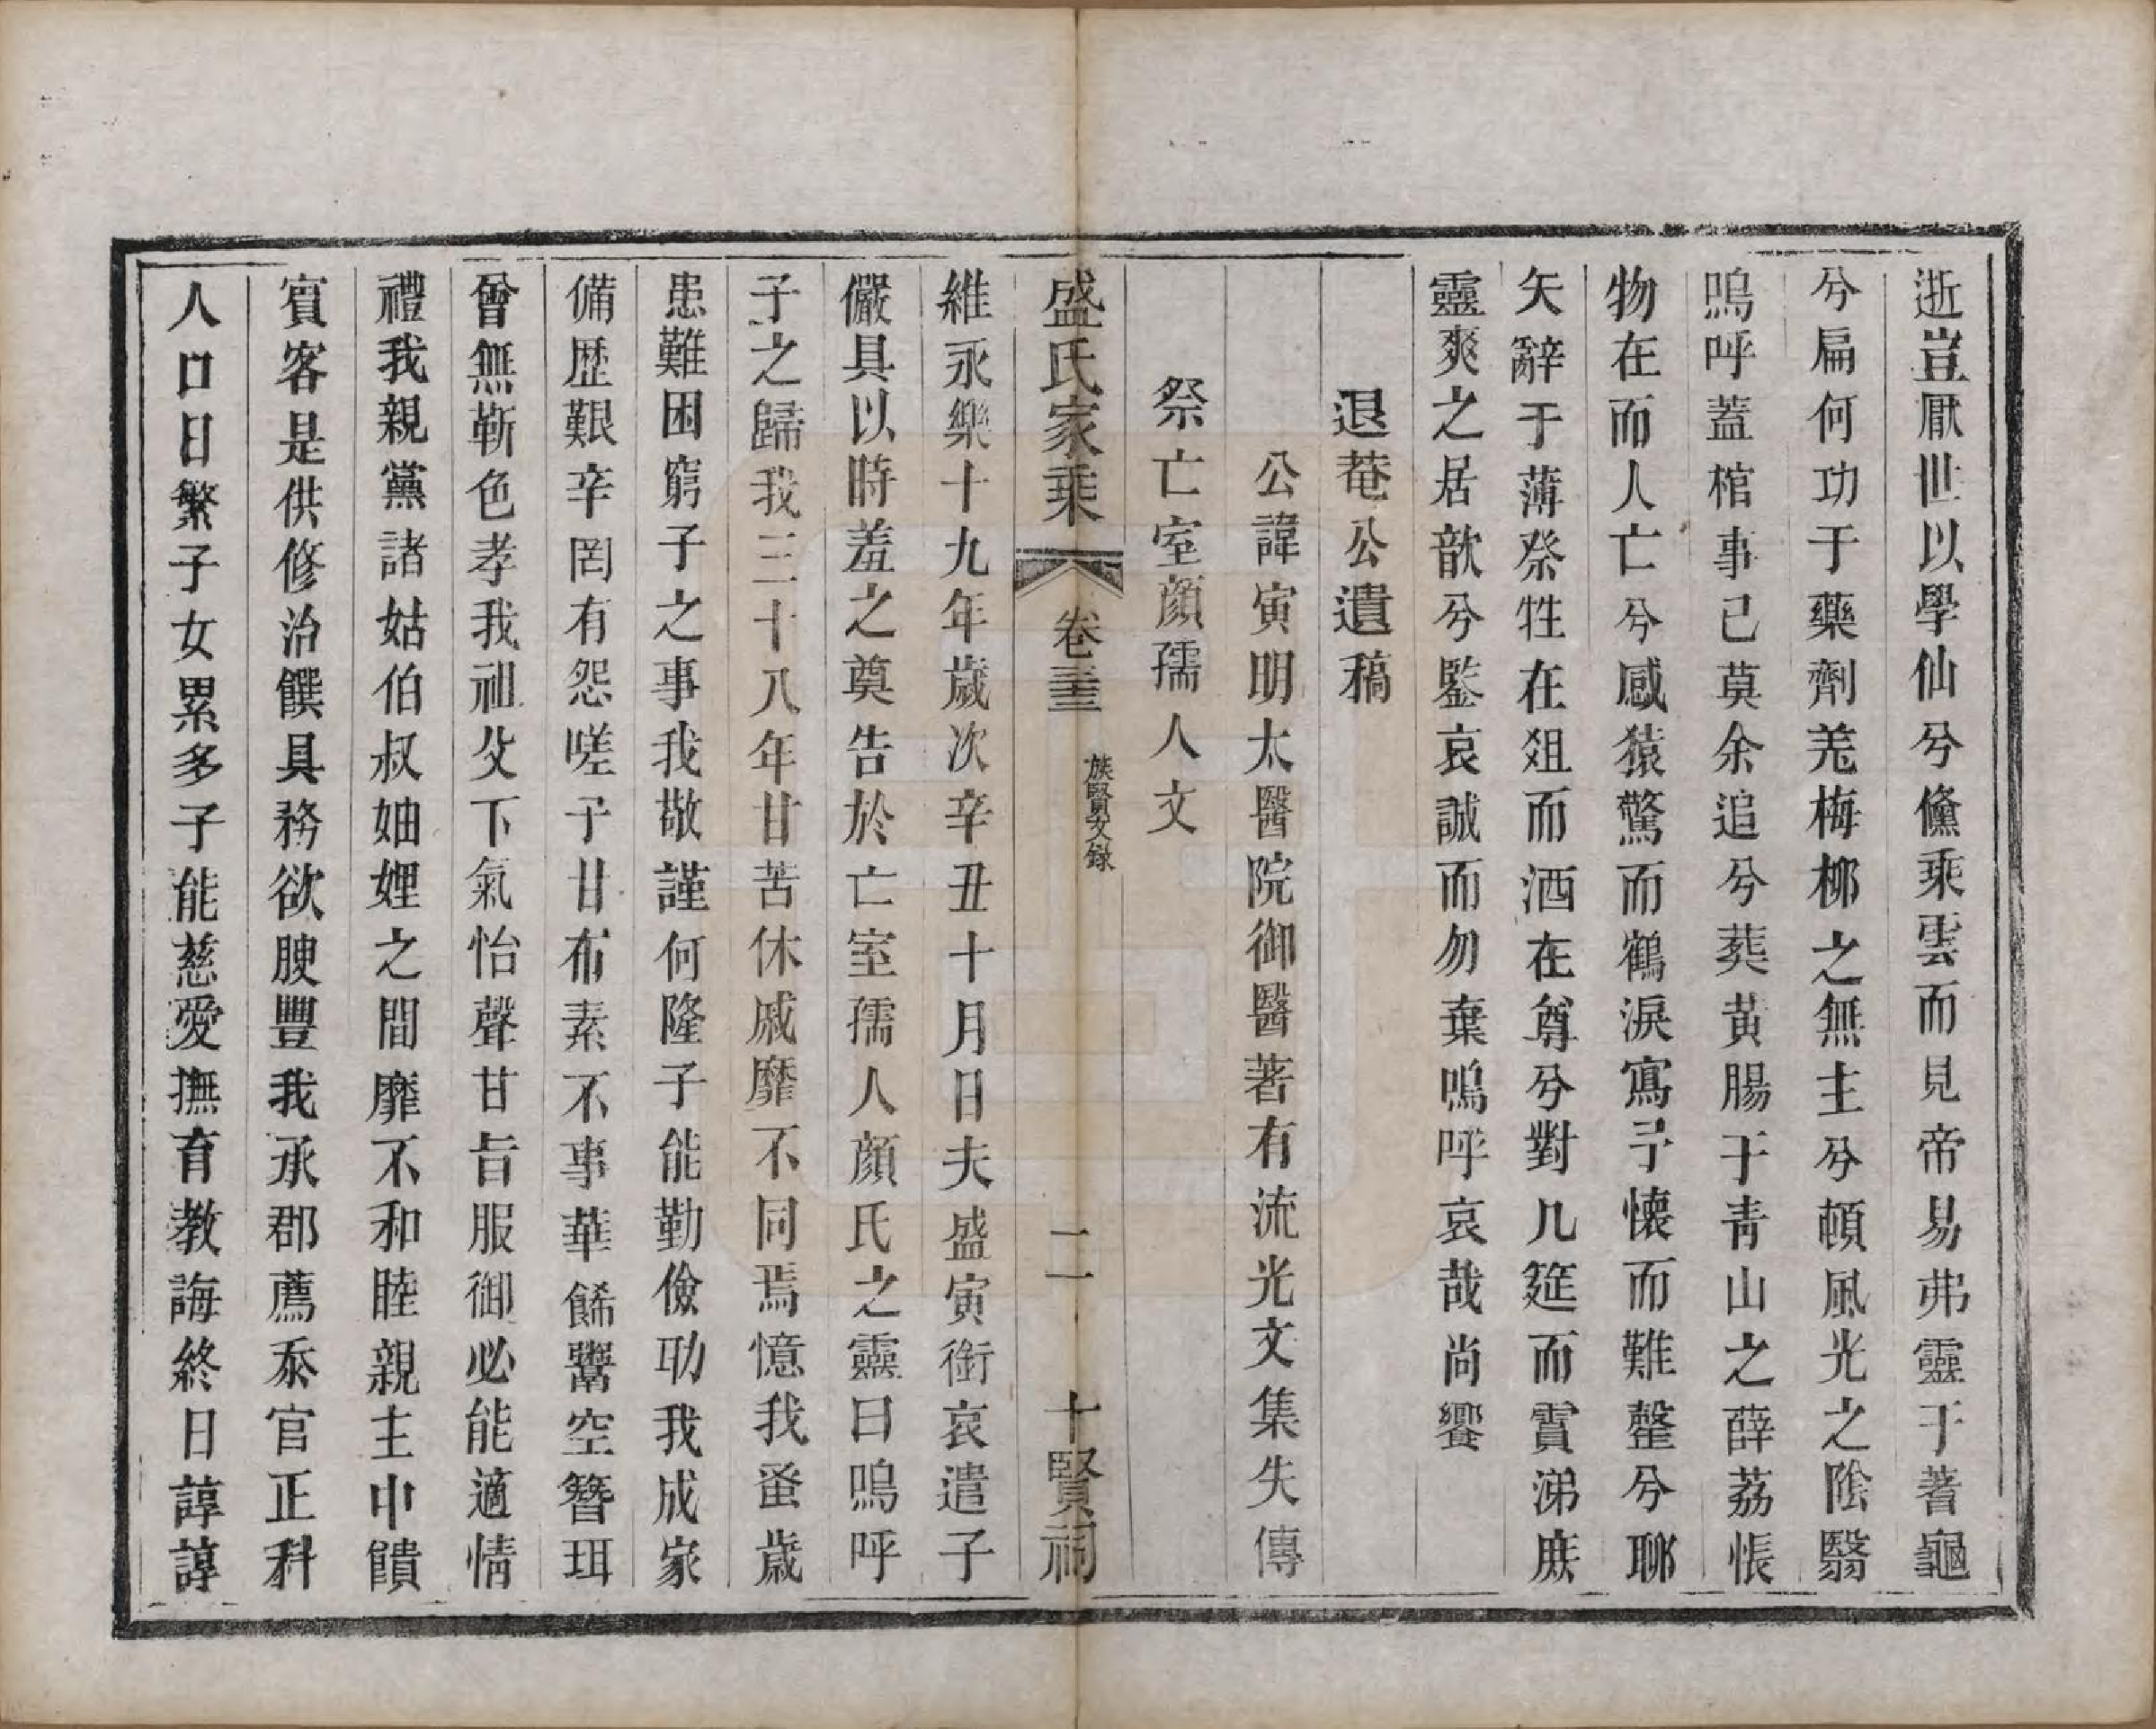 逝豈厭世以學仙兮儵乘雲而見帝易弗靈于著龜
兮扁何功于藥劑羗梅柳之無主兮頓風光之陰翳
嗚呼蓋棺事已莫余追兮葬黃腸于青山之薜荔悵
物在而人亡兮感猿驚而鶴淚寫予懷而難罄兮聊
矢辭于薄祭牲在俎而酒在尊兮對几筵而霣涕庶
靈爽之居歆兮鑒哀誠而勿棄嗚呼哀哉尚饗
退菴公遺稿
公諱寅明太醫院御醫著有流光文集失傳
祭亡室顏孺人文
盛氏家乘 卷三十三 族賢文錄 二一 十賢祠
維永樂十九年歲次辛丑十月日夫盛寅銜哀遣子
儼具以時羞之奠告於亡室孺人顏氏之靈曰嗚呼
子之歸我三十八年甘苦休戚靡不同焉憶我蚤歲
患難困窮子之事我敬謹何隆子能勤儉助我成家
備歷艱辛罔有怨嗟予甘布素不事華餙鬻空簪珥
曾無靳色孝我祖父下氣怡聲甘旨服御必能適情
禮我親黨諸姑伯叔妯娌之間靡不和睦親主中饋
賓客是供修治饌具務欲腴豐我承郡薦忝官正科
人口日繁子女累多子能慈愛撫育教誨終日諄諄